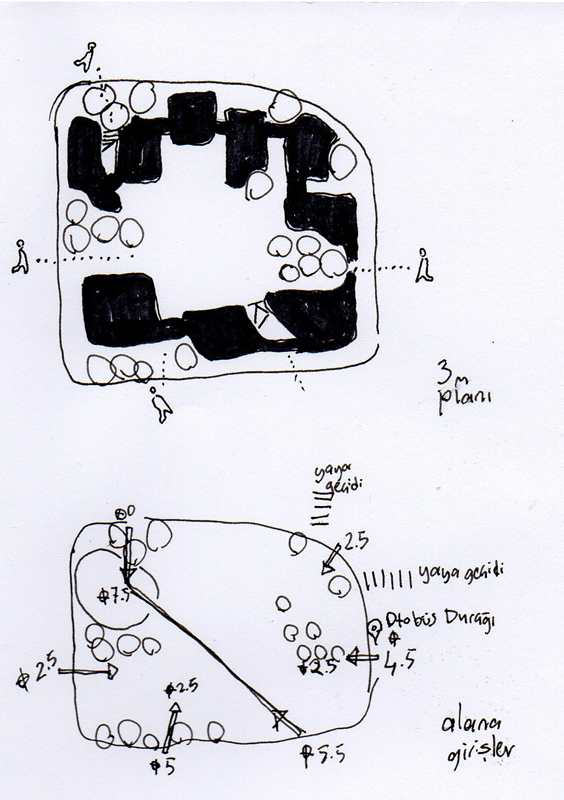 3m
planı
yaya
geçidi
2.5
yaya geçidi
Otobüs Durağı
7.5
2.5
2.5
4.5
2.5
5
5.5
alana
girişler